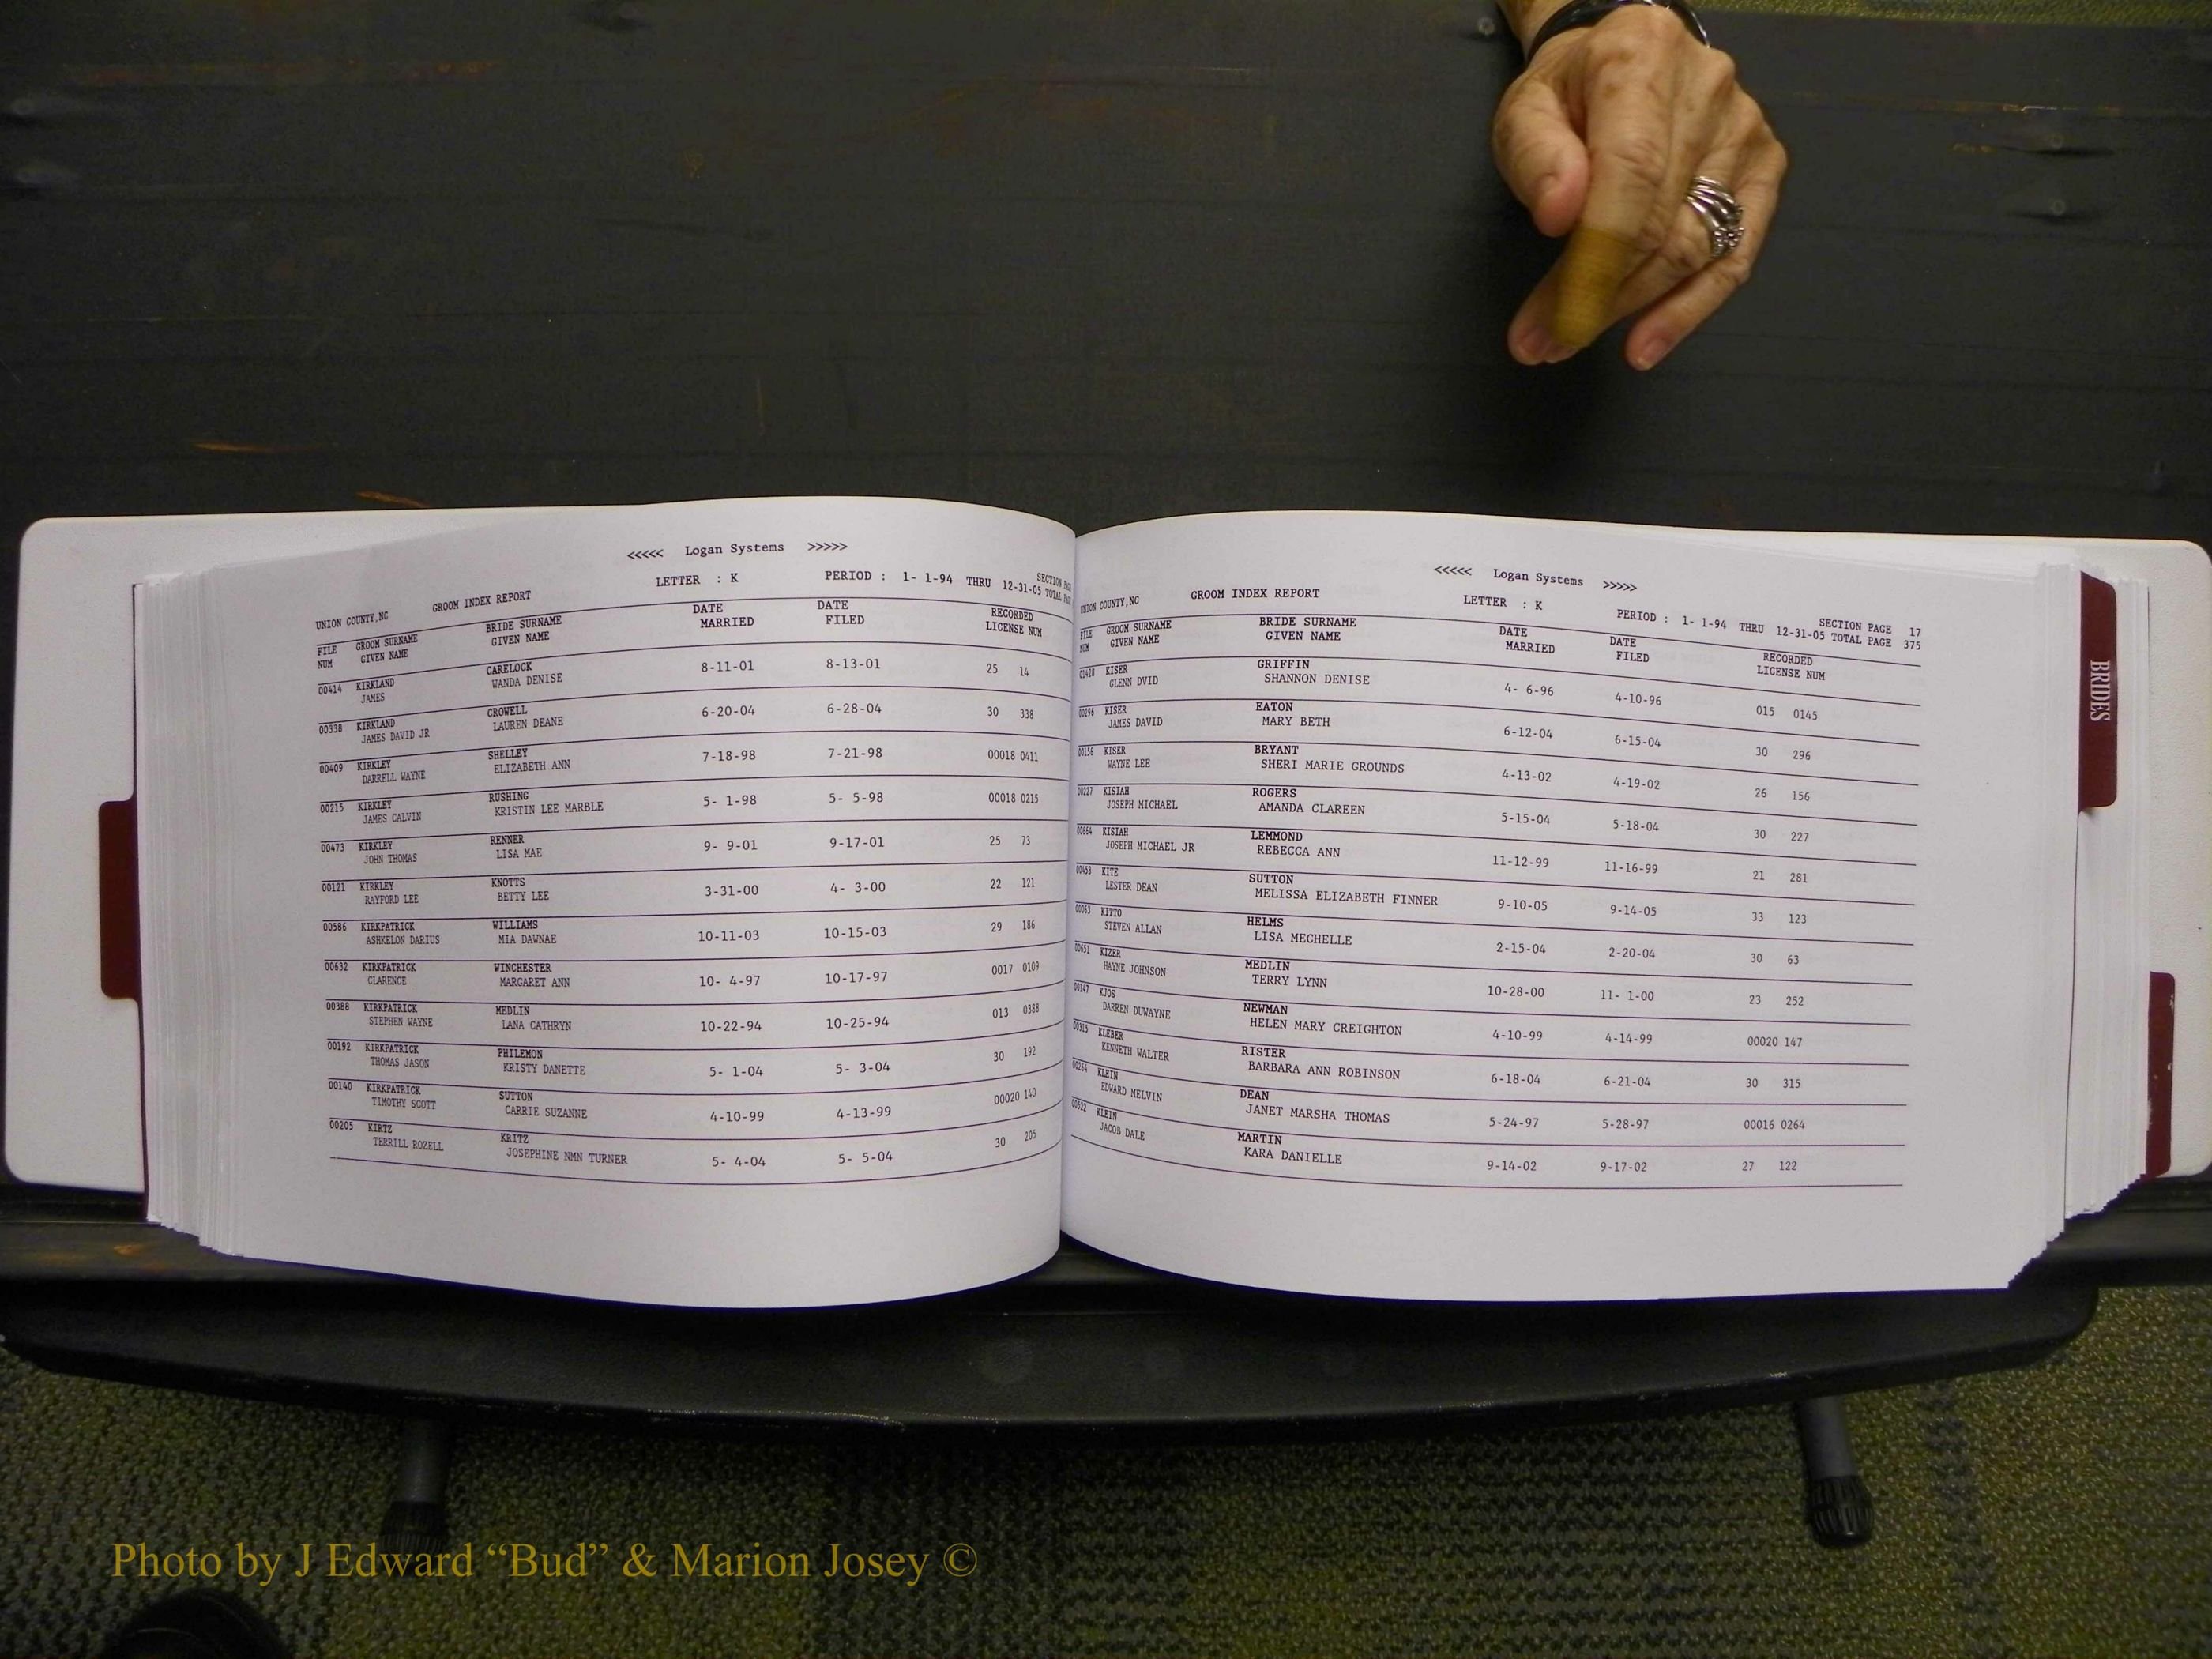 <<<<< Logan Systems >>>>>
UNION COUNTY,NC GROOM INDEX REPORT LETTER : K PERIOD : 1- 1-94 THRU 12-31-05 SECTION
TOTAL
FILE GROOM SURNAME BRIDE SURNAME DATE DATE RECORDED
NUM GIVEN NAME GIVEN NAME MARRIED FILED LICENSE NUM
00414 KIRKLAND CARELOCK 8-11-01 8-13-01 25 14
JAMES WANDA DENISE
00338 KIRKLAND CROWELL 6-20-04 6-28-04 30 338
JAMES DAVID JR LAUREN DEANE
00409 KIRKLEY SHELLEY 7-18-98 7-21-98 00018 0411
DARRELL WAYNE ELIZABETH ANN
00215 KIRKLEY RUSHING 5- 1-98 5- 5-98 00018 0215
JAMES CALVIN KRISTIN LEE MARBLE
00473 KIRKLEY RENNER 9- 9-01 9-17-01 25 73
JOHN THOMAS LISA MAE
00121 KIRKLEY KNOTTS 3-31-00 4- 3-00 22 121
RAYFORD LEE BETTY LEE
00586 KIRKPATRICK WILLIAMS 10-11-03 10-15-03 29 186
ASHKELON DARIUS MIA DAWNAE
00632 KIRKPATRICK WINCHESTER 10- 4-97 10-17-97 0017 0109
CLARENCE MARGARET ANN
00388 KIRKPATRICK MEDLIN 10-22-94 10-25-94 013 0388
STEPHEN WAYNE LANA CATHRYN
00192 KIRKPATRICK PHILEMON 5- 1-04 5- 3-04 30 192
THOMAS JASON KRISTY DANETTE
00140 KIRKPATRICK SUTTON 4-10-99 4-13-99 00020 140
TIMOTHY SCOTT CARRIE SUZANNE
00205 KIRTZ KRITZ 5- 4-04 5- 5-04 30 205
TERRILL ROZELL JOSEPHINE NMN TURNER
<<<<< Logan Systems >>>>>
UNION COUNTY,NC GROOM INDEX REPORT LETTER : K PERIOD : 1- 1-94 THRU 12-31-05 SECTION PAGE 17
TOTAL PAGE 375
FILE GROOM SURNAME BRIDE SURNAME DATE DATE RECORDED
NUM GIVEN NAME GIVEN NAME MARRIED FILED LICENSE NUM
01428 KISER GRIFFIN 4- 6-96 4-10-96 015 0145
GLENN DVID SHANNON DENISE
00296 KISER EATON 6-12-04 6-15-04 30 296
JAMES DAVID MARY BETH
00156 KISER BRYANT 4-13-02 4-19-02 26 156
WAYNE LEE SHERI MARIE GROUNDS
00227 KISIAH ROGERS 5-15-04 5-18-04 30 227
JOSEPH MICHAEL AMANDA CLAREEN
00664 KISIAH LEMMOND 11-12-99 11-16-99 21 281
JOSEPH MICHAEL JR REBECCA ANN
00453 KITE SUTTON 9-10-05 9-14-05 33 123
LESTER DEAN MELISSA ELIZABETH FINNER
00063 KITTO HELMS 2-15-04 2-20-04 30 63
STEVEN ALLAN LISA MECHELLE
00651 KIZER MEDLIN 10-28-00 11- 1-00 23 252
HAYNE JOHNSON TERRY LYNN
00147 KJOS NEWMAN 4-10-99 4-14-99 00020 147
DARREN DUWAYNE HELEN MARY CREIGHTON
00315 KLEBER RISTER 6-18-04 6-21-04 30 315
KENNETH WALTER BARBARA ANN ROBINSON
00264 KLEIN DEAN 5-24-97 5-28-97 00016 0264
EDWARD MELVIN JANET MARSHA THOMAS
00522 KLEIN MARTIN 9-14-02 9-17-02 27 122
JACOB DALE KARA DANIELLE
BRIDES
Photo by J Edward “Bud” & Marion Josey ©